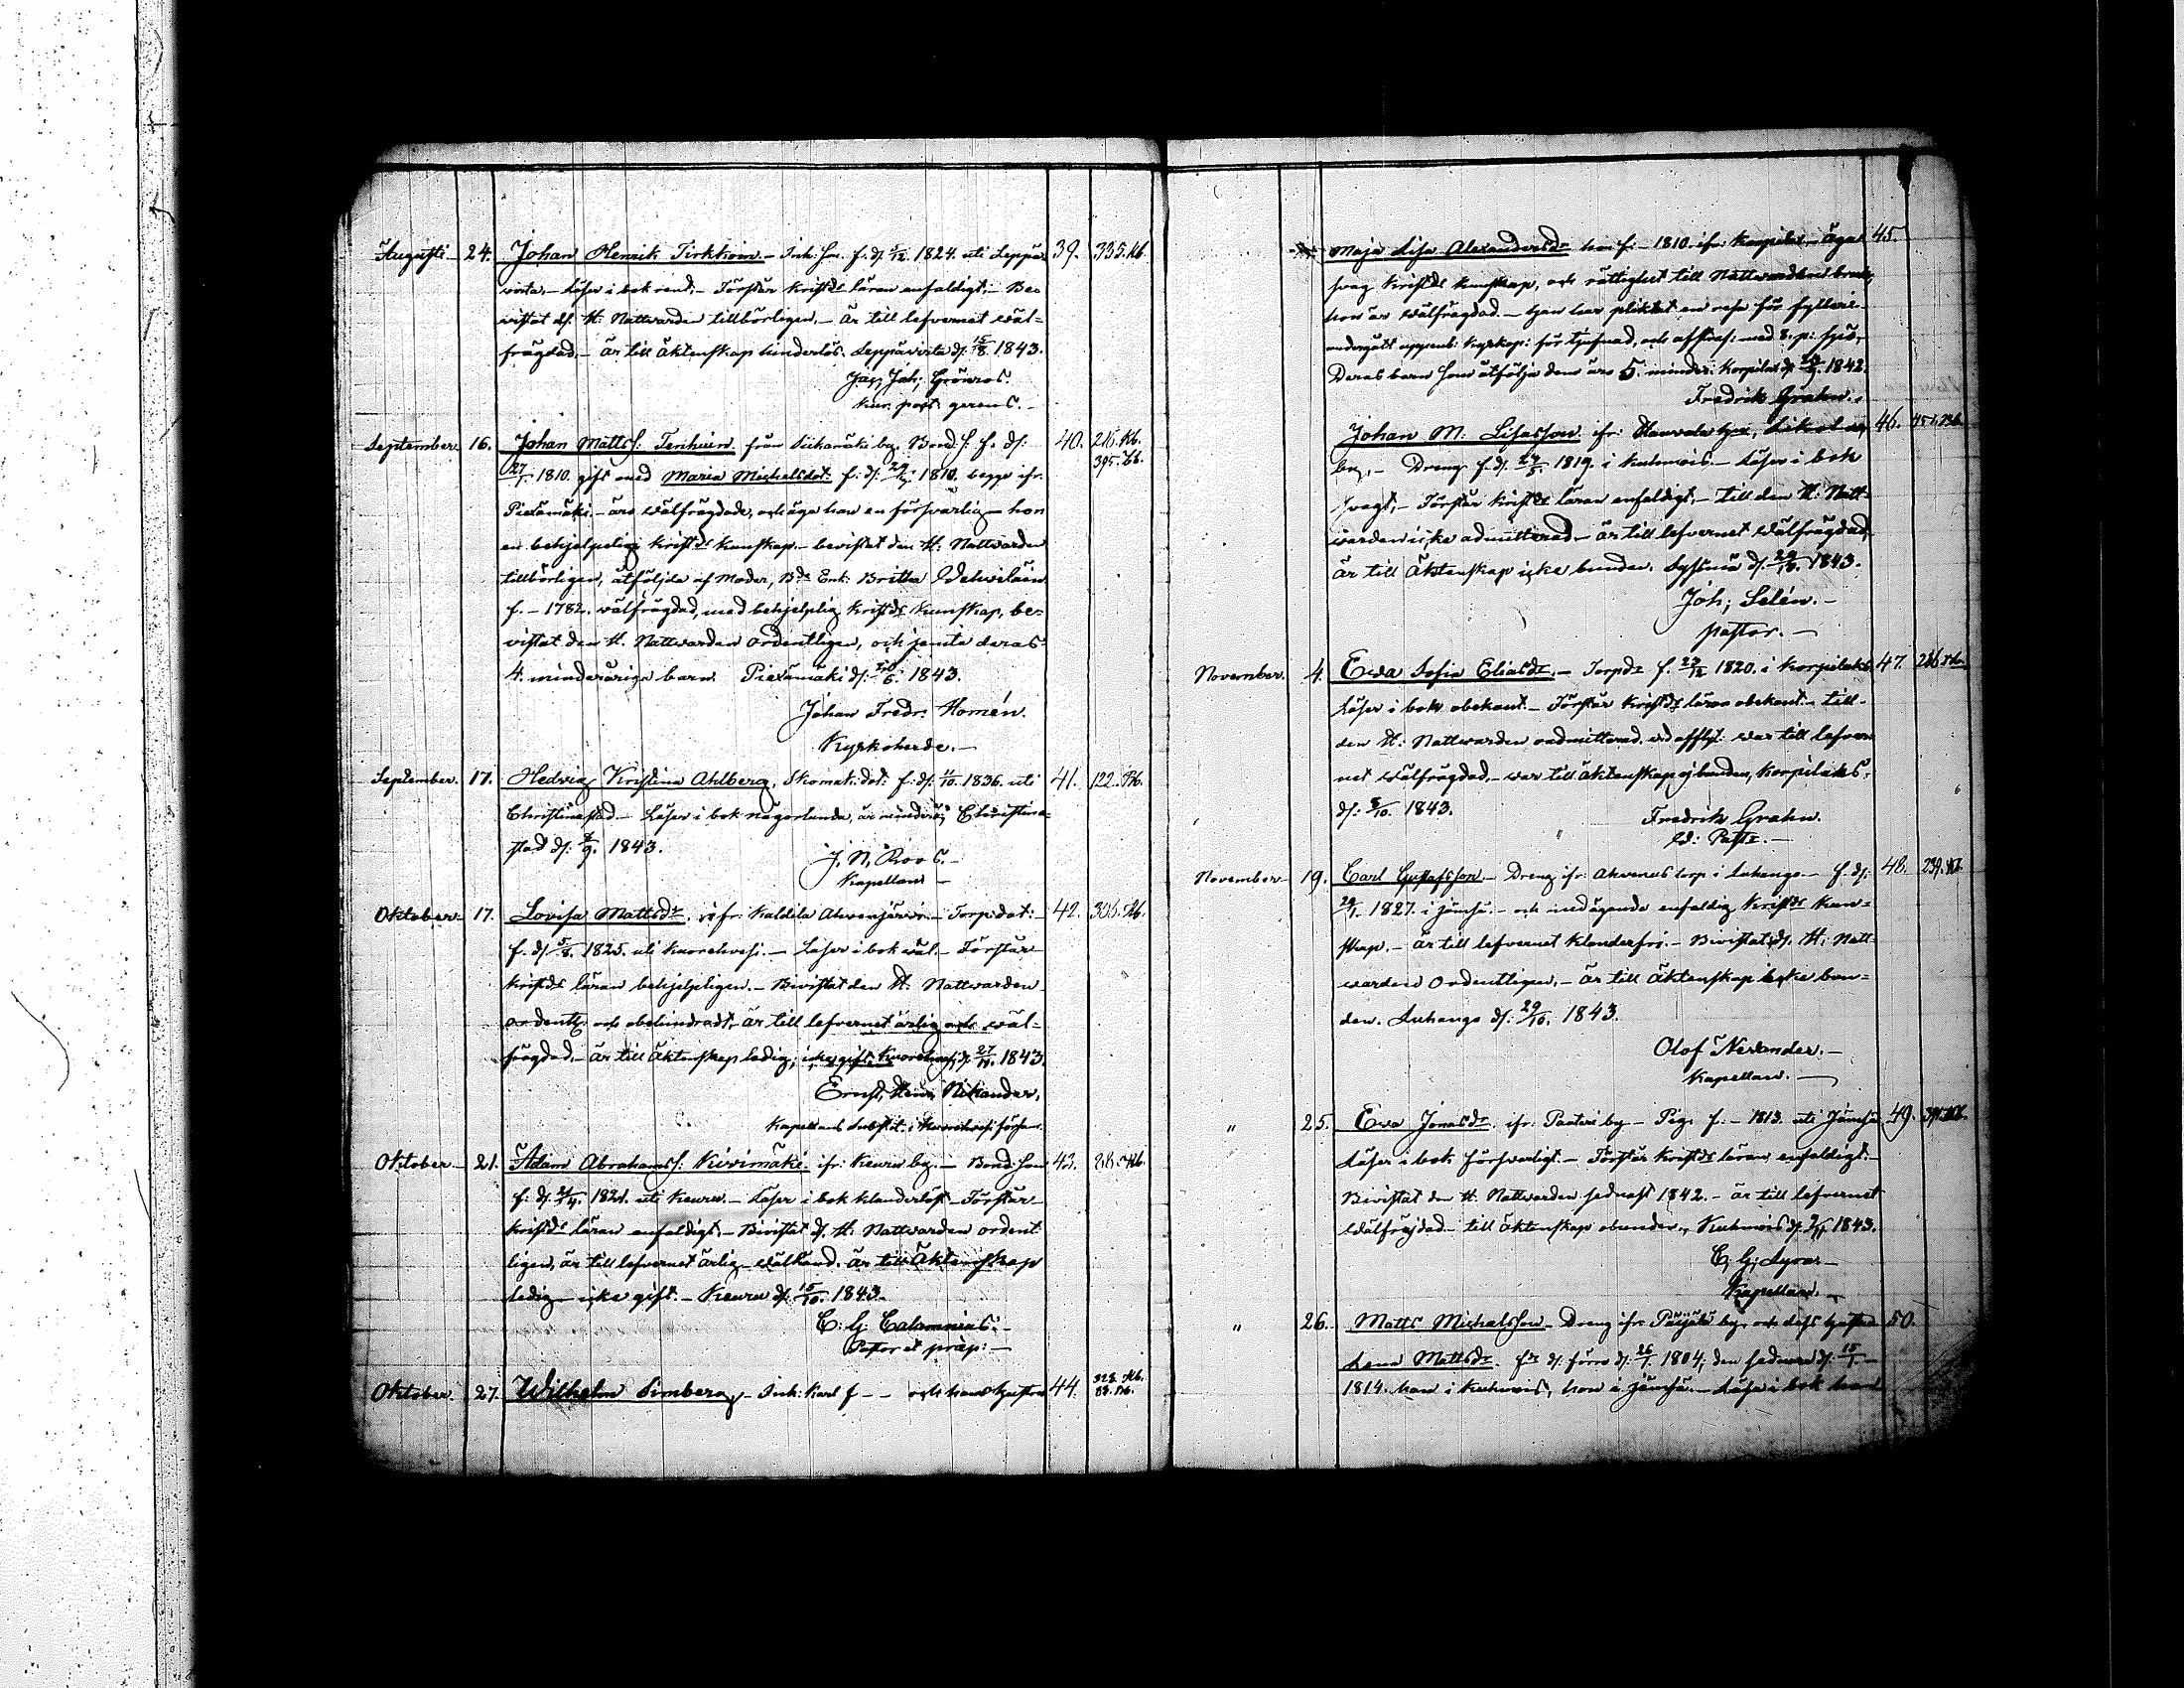 Augusti. 24. Johan Henrik Tirkkoin. - Inh: Son. f. d: 1824. uti Leppä- 39. 335. Kb.
virta. - Läser i bok rend. - Förstår kristds läran enfaldigt. - Be-
vistat d: H: Nattvarden tillbörligen. - är till lefvernet väl-
frägdad. - är till äktenskap hinderlös. Leppävirta d: 15/8. 1843.
Joh; Grönros.
past: gerens.
September. 16. Johan Matts: Tenhuin. från by. Bond: S: f. d: 40. 215. Kb.
27/1. 1810. gift med Maria Michelsdot: f: d: 1810. begge ifr. 395. Kb.
Piexämäki. - äro välfrägdade, och äga han en försvarlig - hon
en behjelpelig kristds kunskap. - bevistat den H: Nattvarden
tillbörligen, åtföljda af Moder, Bds Enk: Britta
f. - 1782. välfrägdad, med behjelplig kristds kunskap, be-
vistat den H. Nattvarden ordentligen, och jemte deras
4. minderåriga barn. Piexämäki d: 1843.
Johan Fredr: Homén.
Kyrkoherde. -
September. 17. Hedvig Kristina Ahlberg, Skomak: dot: f: d: 1836. uti 41. 122. Kb.
Christinestad. - Läser i bok någorlunda, är minderår; Christine-
stad d: 1843.
J. N. Roos. -
Kapellan -
Oktober. 17. Lovisa Mattsdr. ifr: Kaldila Ahvenjärvi. - Torp: dot: - 42. 306. Kb.
f. d: 5/8. 1825. uti Kuorehvesi. - Läser i bok väl. - Förstår
kristds läran behjelpligen. - Bivistat den H. Nattvarden
ordentl: och obehindradt, är till lefvernet ärlig och väl-
frägdad. - är till äktenskap ledig; icke gift. Kuorehvesi d. 1843.
Ernst, Henr; Nikander,
Kapellans Substit: i Kuorehvesi förs:
Oktober. 21. Adam Abrahams: Kivimäki. ifr: Keuru by. - Bond: Son 43. 88. Kb.
f: d: 1821. uti Keuru. - Läser i bok klanderlöst. - Förstår
kristds läran enfaldigt. - Bivistat d: H: Nattvarden ordent-
ligen, är till lefvernet ärlig välkänd. är till äktenskap
ledig - icke gift. - Keuru d: 15/10. 1843.
C: G: Calamnius. -
Pastor et præp: -
Oktober. 27. Wilhelm Simberg, - Inh: karl f - - och hans hustru 44. 328. Kb.
Maja Lisa Alexandersdr hon f: - 1810. ifr: Korpilax. - äga 45.
svag kristds kunskap, och rättighet till Nattvardens bruk,
hon är välfrägdad. - han har pliktat en resa för fylleri -
undergått uppenb: kyrkop: för tjufnad, och med
Deras barn som åtfölja dem äro 5. minder: Korpilax d. 1842.
Fredrik Grahn.
Johan M: Lisasson. ifr: 46. 451. Kb.
by. - Dreng f. d: 1819. i Kuhmois. - Läser i bok
svagt. - Förstår kristds läran enfaldigt. - till den H: Natt-
varden icke admitterad. - är till lefvernet välfrägdad,
är till äktenskap icke bunden. Sysmä d: 29/10. 1843.
Joh; Selén. -
pastor. -
November. 4. Ewa Sofia Eliasdr. - Torpdr f. 1820. i Korpilaks 47. 286. Kb.
Läser i bok obekant. - Förstår kristds läran obekant. - till
den H: Nattvarden oadmitterad. vid affl: var till lefver-
net välfrägdad, - var till äktenskap ej bunden, Korpilaks,
d: 8/10. 1843.
Fredrik Grahn.
Past:. -
November - 19. Carl Gustafsson. - Dreng ifr: Ahvenus torp i Luhango. - f. d: 48. 239. Kb.
29/1. 1827. i Jämsä. - och inneägande enfaldig kristds kun-
skap. - är till lefvernet klanderfri. - Bivistat d. H: Natt-
varden ordentligen. - är till äktenskap icke bun-
den. Luhango d: 29/10. 1843.
Olof Nexander. -
Kapellan. -
" 25. Ewa Jonasdr. ifr: by - Pig. f: - 1813. uti Jämsä 49.
Läser i bok försvarligt. - Förstår kristds läran enfaldigt. -
Bivistat den H. Nattvarden sednast 1842. - är till lefvernet
välfrägdad. - till äktenskap obunden, Kuhmois d: 1843.
C, G;
Kapellan. -
" 26. Matts Michelsson - Dreng ifr: by. och dess hustru 50.
Lena Mattsdr. fr d: förre d: 26/1. 1804; den sednare d: 15/1. -
1814. han i Kuhmois, hon i Jämsä. - Läser i bok han